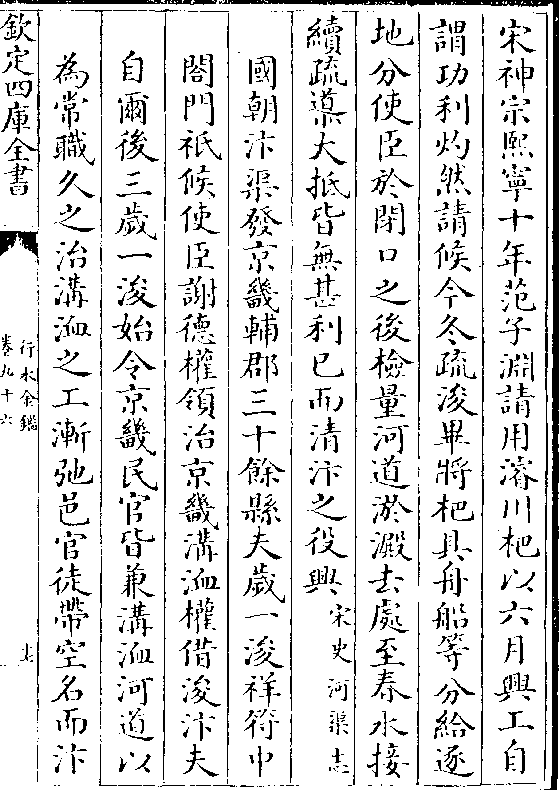 宋神宗熙寧十年范子淵請用濬川杷以六月興工自
謂功利灼然請候今冬疏浚畢將杷具舟船等分給逐
地分使臣於閉口之後檢量河道淤澱去處至春水接
續疏導大抵皆無甚利已而清汴之役興宋史河渠志
國朝汴渠發京畿輔郡三十餘縣夫歲一浚祥符中
閤門祗候使臣謝德權領治京畿溝洫權借浚汴夫
自爾後三歲一浚始令京畿民官皆兼溝洫河道以
為常職久之治溝洫之工漸弛邑官徒帶空名而汴
欽定四庫全書
行水金鑑
卷九十六